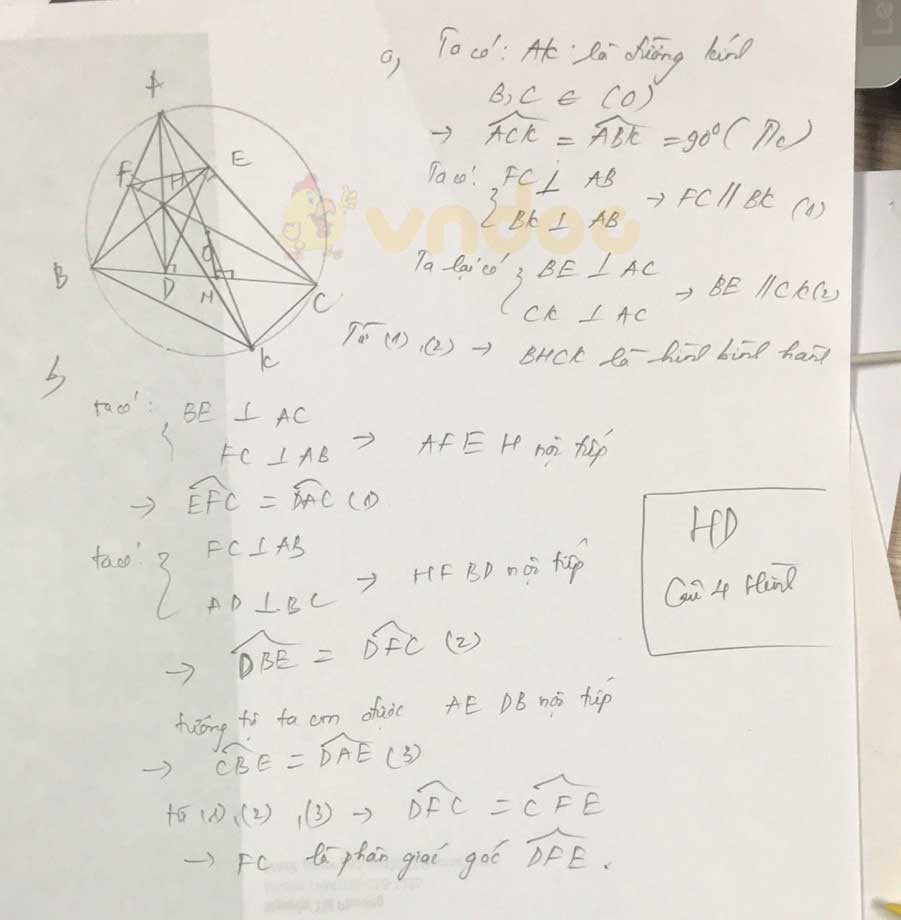 a, Ta có: AK là đường kính
B, C ∈ (O)
→ ∠ACK = ∠ABK = 90°
Ta có: { FC ⊥ AB
BK ⊥ AB → FC // BK (1)
Ta lại có { BE ⊥ AC
CK ⊥ AC → BE // CK (2)
Từ (1), (2) → BHCK là hình bình hành
A
F
H
E
B
D
O
M
C
K
vndoc
b,
ta có: { BE ⊥ AC
FC ⊥ AB → AFEH nội tiếp
→ ∠EFC = ∠DAC (1)
ta có: { FC ⊥ AB
AD ⊥ BC → HFBD nội tiếp
→ ∠DBE = ∠DFC (2)
tương tự ta cm được AEDB nội tiếp
→ ∠CBE = ∠DAE (3)
từ (1), (2), (3) → ∠DFC = ∠CFE
→ FC là phân giác góc ∠DFE.
HD
Câu 4 Hình
Le